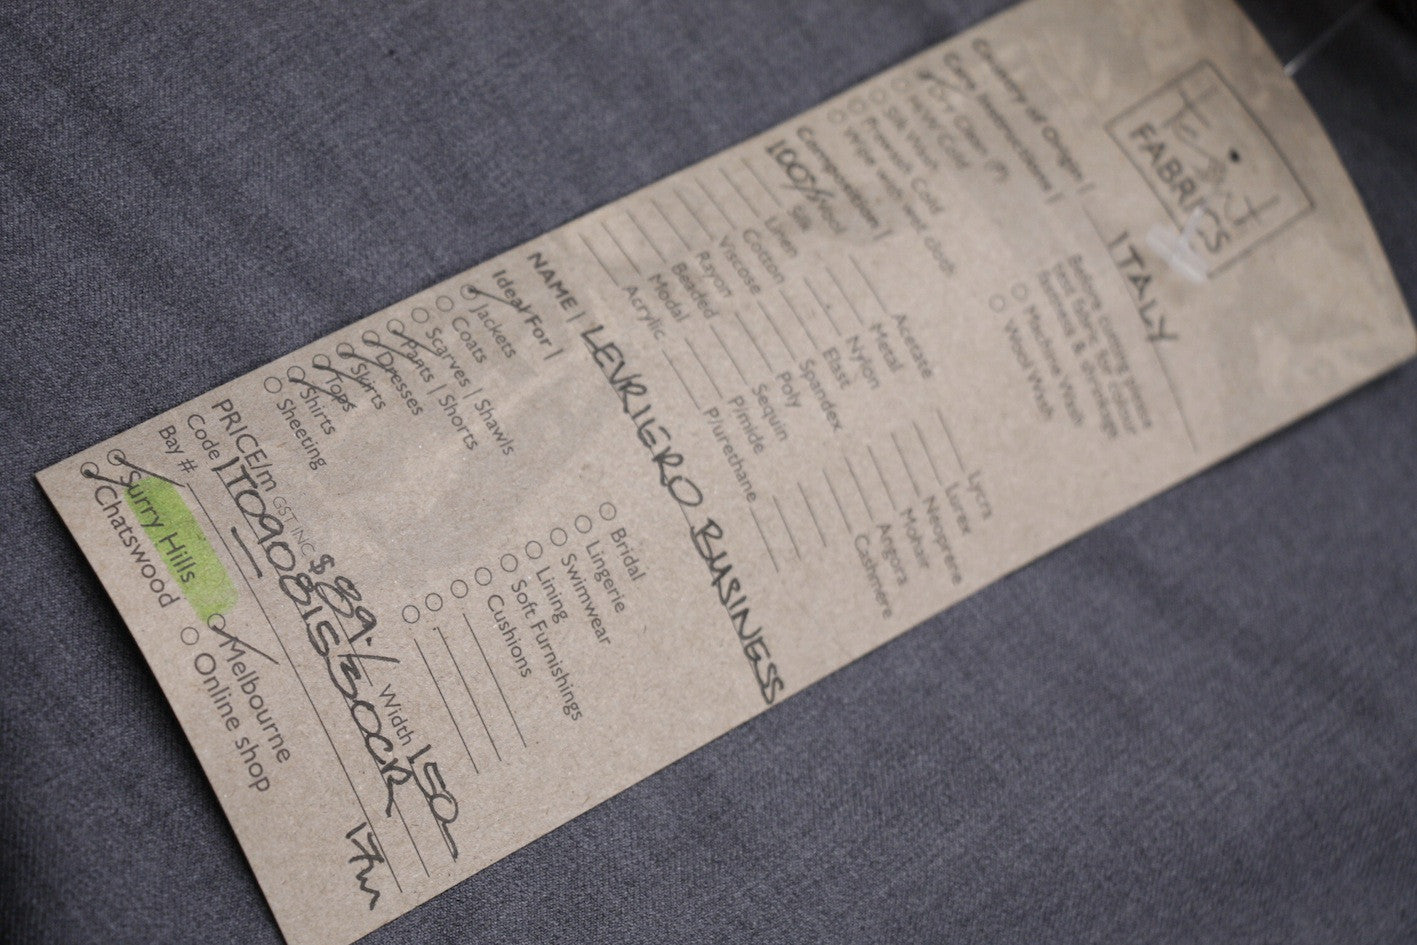 Tessuti
FABRICS
Country of Origin | ITALY
Care Instructions |
Dry Clean (P)
H/W Cold
Silk Wash
Prewash Cold
Wipe with wet cloth
Before cutting please
Machine Wash
Wool Wash
Composition |
100% Wool
Silk
Linen
Cotton
Viscose
Rayon
Beaded
Modal
Acrylic
Acetate
Metal
Nylon
Elast
Spandex
Poly
Sequin
Pimide
P/urethane
Lycra
Lurex
Neoprene
Mohair
Angora
Cashmere
NAME | LEVRIERO BUSINESS
Ideal For |
Jackets
Coats
Scarves | Shawls
Pants | Shorts
Dresses
Skirts
Tops
Shirts
Sheeting
Bridal
Lingerie
Swimwear
Lining
Soft Furnishings
Cushions
PRICE/m GST INC $89.- Width 150
Code
Bay # 17m
Surry Hills Melbourne
Chatswood Online shop